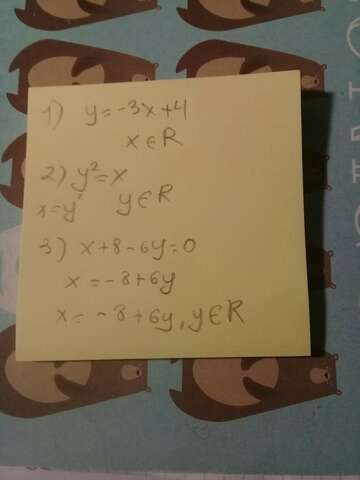 1) y = -3x + 4
x ∈ R
2) y² = x
x = y² y ∈ R
3) x + 8 - 6y = 0
x = -8 + 6y
x = -8 + 6y, y ∈ R